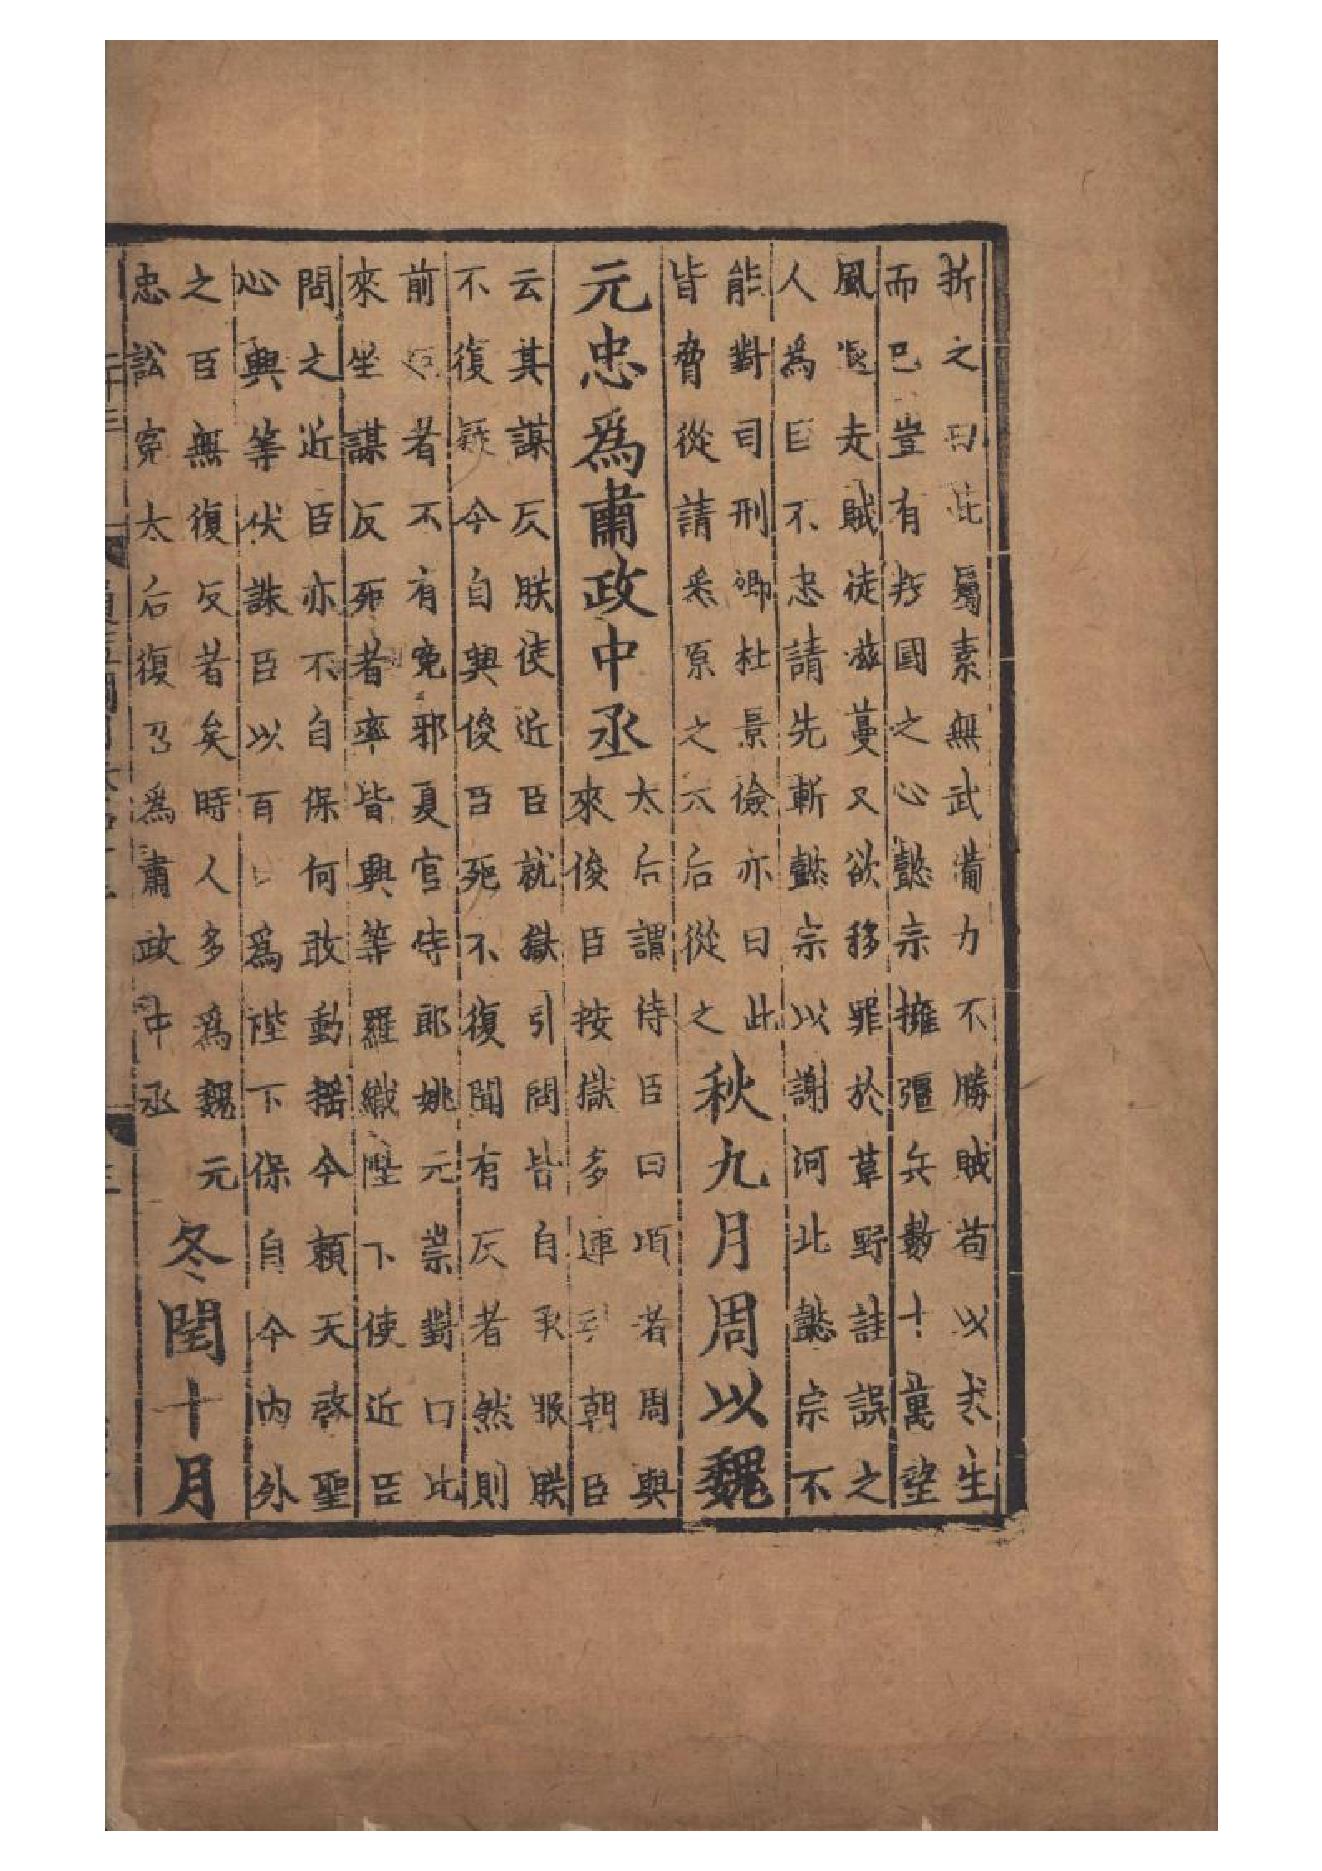 折之曰此屬素無武備力不勝賊苟以求生
而已豈有叛國之心懿宗擁彊兵數十萬望
風退走賊徒滋蔓又欲移罪於草野詿誤之
人為臣不忠請先斬懿宗以謝河北懿宗不
能對司刑卿杜景儉亦曰此
皆脅從請悉原之太后從之
秋九月周以魏
元忠爲肅政中丞
太后謂侍臣曰頃者周興
來俊臣按獄多連引朝臣
云其謀反朕使近臣就獄引問皆自承服朕
不復疑今自興俊臣死不復聞有反者然則
前死者不有寃邪夏官侍郎姚元崇對曰比
來坐謀反死者率皆興等羅織陛下使近臣
問之近臣亦不自保何敢動搖今賴天啓聖
心興等伏誅臣以百口為陛下保自今內外
之臣無復反者矣時人多為魏元
忠訟寃太后復召爲肅政中丞
冬閏十月